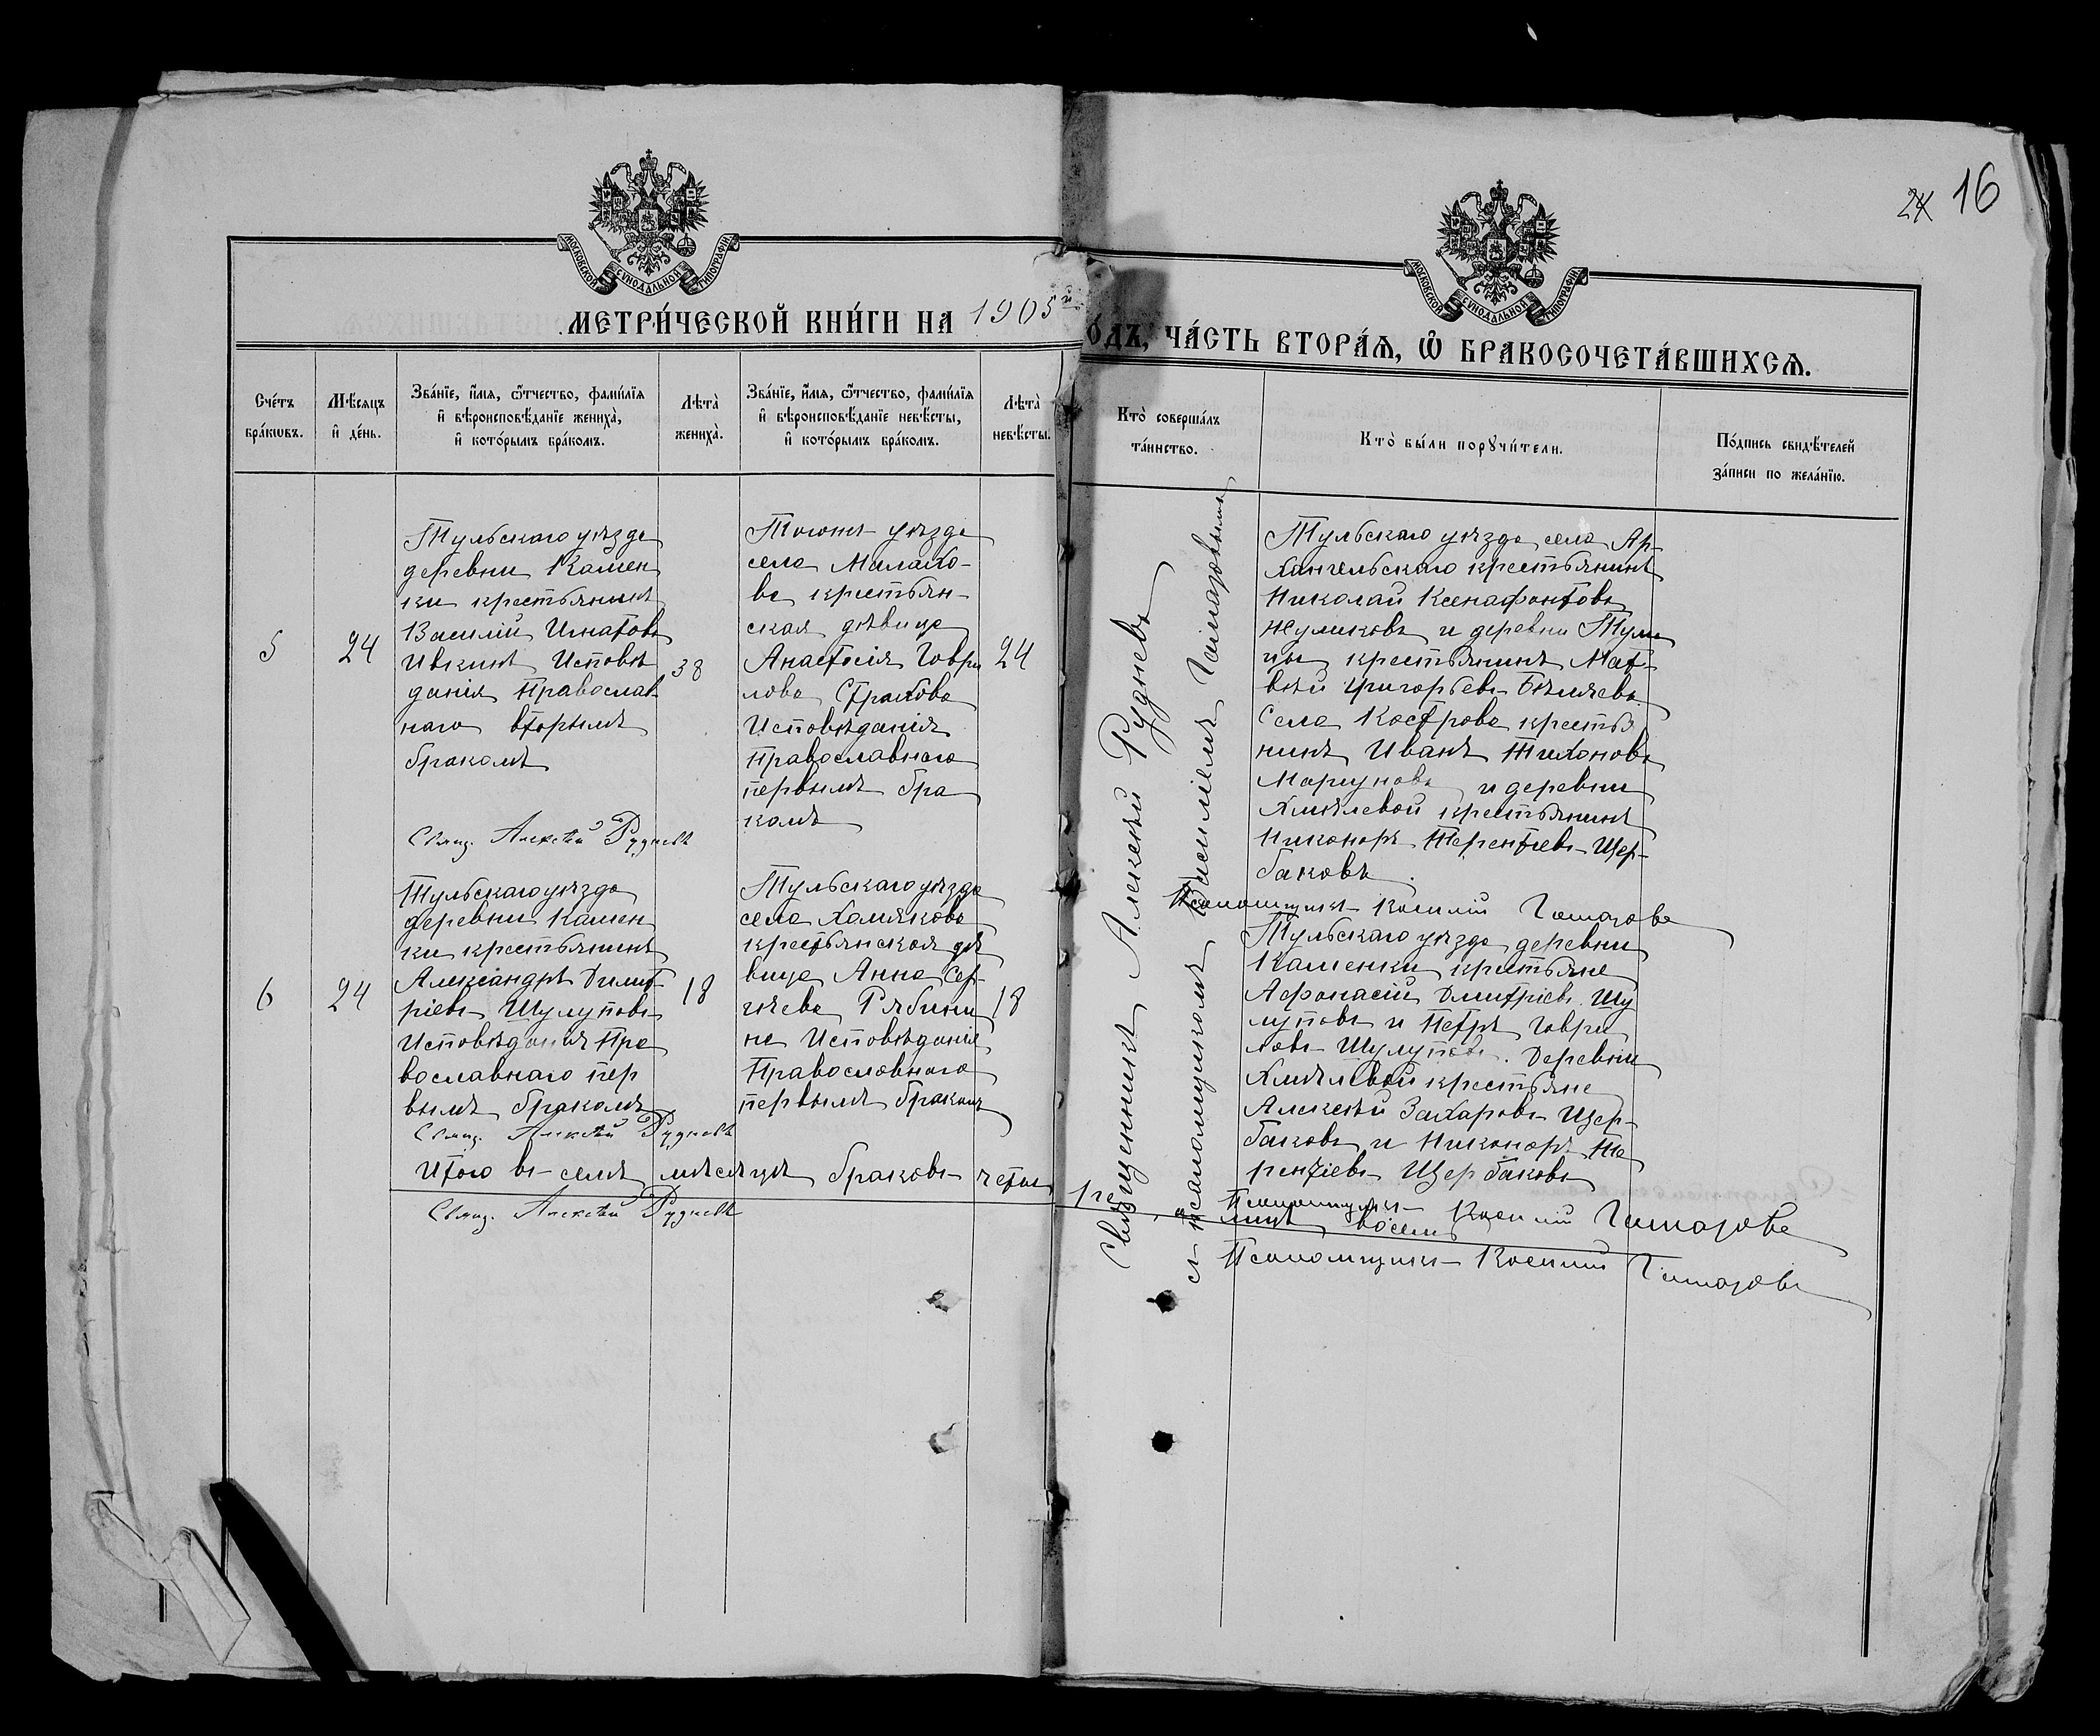 24 16
МОСКОВСКОЙ СѴНОДАЛЬНОЙ ТИПОГРАФІИ
МОСКОВСКОЙ СѴНОДАЛЬНОЙ ТИПОГРАФІИ
МЕТРИ́ЧЕСКОЙ КНИ́ГИ НА 1905й
О́ДЪ, ЧА́СТЬ ВТОРА́Ѧ, Ѽ БРАКОСОЧЕТА́ВШИХСѦ.
Сче́тъ
бра́кωвъ.
Мѣ́сѧцъ
и҆ де́нь.
Зва́нїе, и҆́мѧ, ѻ҆́тчество, фами́лїѧ
и҆ вѣроисповѣ́данїе жениха̀,
и҆ кото́рымъ бра́комъ.
Лѣта̀
жениха̀.
Зва́нїе, и҆́мѧ, ѻ҆́тчество, фами́лїѧ
и҆ вѣроисповѣ́данїе невѣ́сты,
и҆ кото́рымъ бра́комъ.
Лѣта̀
невѣ́сты.
Кто̀ соверша́лъ
та́инство.
Кто̀ бы́ли порꙋчи́тели.
По́дпись свидѣ́телей
за́писи по жела́нїю.
5
24
Тульскаго уѣзда
деревни Камен
ки крестьянинъ
Василій Игнатовъ
Ивкинъ Исповѣ
данія Православ
наго вторымъ
бракомъ
38
Тогоже уѣзда
села Малахо-
ва крестьян-
ская дѣвица
Анастасія Гаври
лова Страхова
Исповѣданія
Православнаго
первымъ бра
комъ
24
Свящ. Алексѣй Рудневъ
Тульскаго уѣзда села Ар-
хангельскаго крестьянинъ
Николай Ксенафонтовъ
Жуликовъ и деревни Тули
цы крестьянинъ Мат-
вѣй Григорьевъ Бѣляевъ.
Села Кострова крестья
нинъ Иванъ Тихоновъ
и деревни
Хмѣлевой крестьянинъ
Никаноръ Терентіевъ Щер-
баковъ.
Псаломщикъ
6
24
Тульскаго уѣзда
деревни Камен
ки крестьянинъ
Александръ Димит-
ріевъ Шулуповъ
Исповѣданія Пра
вославнаго пер
вымъ бракомъ
18
Тульскаго уѣзда
села Хомякова
крестьянская дѣ
вица Анна Сер-
гѣева Рябини
на Исповѣданія
Православнаго
первымъ бракомъ
18
Свящ. Алексѣй Рудневъ
Тульскаго уѣзда деревни
Каменки крестьяне
Афонасій Дмитріевъ Шу
луповъ и Петръ Гаври
ловъ Шулуповъ. Деревни
Хмѣлевой крестьяне
Алексѣй Захаровъ Щер-
баковъ и Никаноръ Те
рентіевъ Щербаковъ
Псаломщикъ
Священникъ Алексѣй Рудневъ
съ псаломщикомъ
Итого въ семъ мѣсяцѣ браковъ четы ре
Свящ. Алексѣй Рудневъ
Псаломщикъ